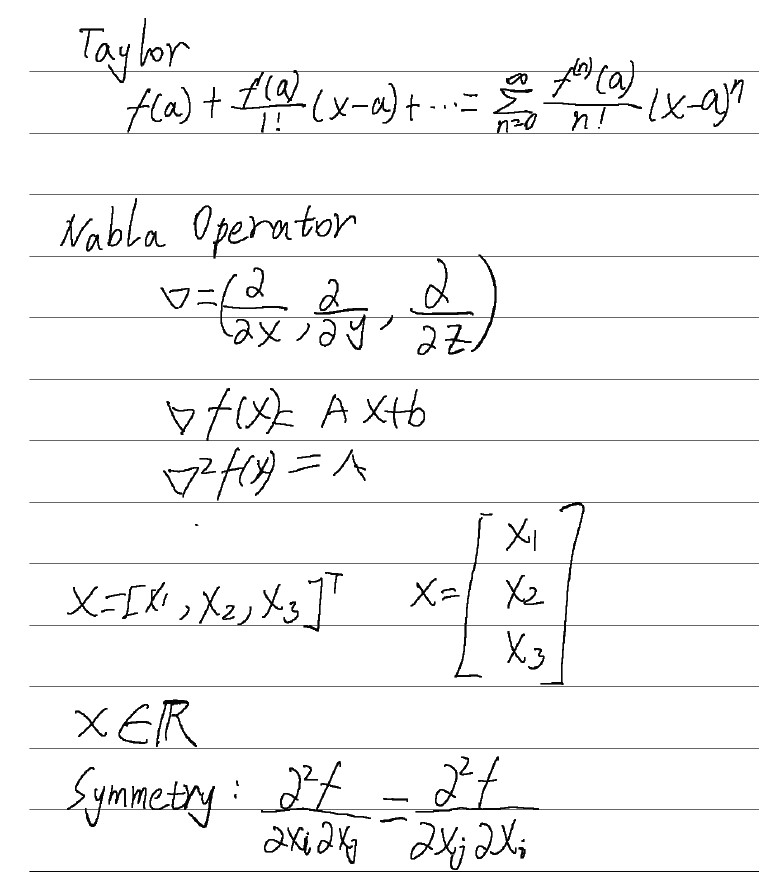 Taylor
f(a) + f'(a)/1! (x-a) + ... = ∑_{n=0}^{∞} f^{(n)}(a)/n! (x-a)^n
Nabla Operator
∇ = (∂/∂x, ∂/∂y, ∂/∂z)
∇f(x) = Ax+b
∇²f(x) = A
x = [x₁, x₂, x₃]ᵀ x = [x₁ x₂ x₃]
x ∈ ℝ
Symmetry: ∂²f/∂xᵢ∂xⱼ = ∂²f/∂xⱼ∂xᵢ